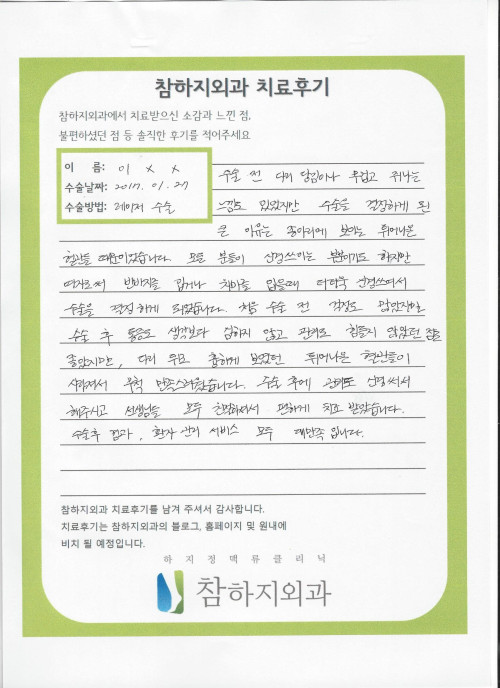 참하지외과 치료후기
참하지외과에서 치료받으신 소감과 느낀 점,
불편하셨던 점 등 솔직한 후기를 적어주세요
이 름: 이 x x
수술날짜: 2017. 01. 27
수술방법: 레이저 수술
수술 전 다리 당김이나 무겁고 쥐나는
느낌도 있었지만 수술을 결정하게 된
큰 이유는 종아리에 보이는 튀어나온
혈관들 때문이었습니다. 모든 분들이 신경쓰이는 부분이기도 하지만
여자로써 반바지를 입거나 치마를 입을때 더더욱 신경쓰여서
수술을 결정하게 되었습니다. 처음 수술 전 걱정도 많았지만
수술 후 통증도 생각보다 심하지 않고 관리도 힘들지 않았던 점도
좋았지만, 다리 위로 흉하게 보였던 튀어나온 혈관들이
사라져서 무척 만족스러웠습니다. 수술 후에 관리도 신경써서
해주시고 선생님들 모두 친절하셔서 편하게 치료 받았습니다.
수술후 효과, 환자 관리 서비스 모두 대만족입니다.
참하지외과 치료후기를 남겨 주셔서 감사합니다.
치료후기는 참하지외과의 블로그, 홈페이지 및 원내에
비치 될 예정입니다.
하지정맥류클리닉
참하지외과